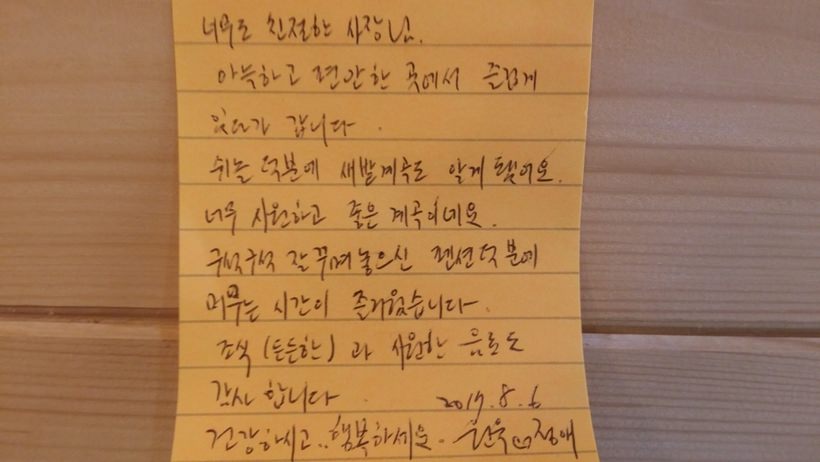 너무도 친절한 사장님.
아늑하고 편안한 곳에서 즐겁게
있다가 갑니다.
쉬는 덕분에 새밭계곡도 알게 됐어요.
너무 시원하고 좋은 계곡이네요.
구석구석 잘 꾸며놓으신 펜션덕분에
머무는 시간이 즐거웠습니다.
조식 (든든한) 과 시원한 음료도
감사합니다. 2017. 8. 6
건강하시고.. 행복하세요. 정애